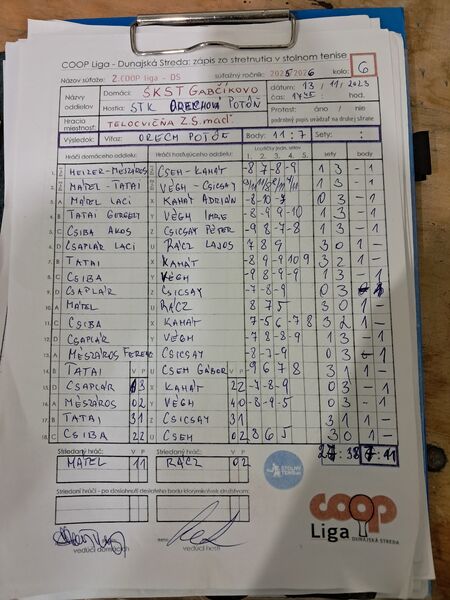 COOP Liga - Dunajská Streda: zápis zo stretnutia v stolnom tenise
Názov súťaže: 2. COOP liga - DS súťažný ročník: 2025/2026 kolo: 6
Názvy oddielov Domáci: ŠKST GABČÍKOVO dátum: 13/11/2023
Hostia: STK ORECHOVÁ POTÔŇ čas:
Hracia miestnosť: TELOCVIČŇA Z.Š. Protest: áno / nie
podrobný popis uviesť na druhej strane
Výsledok: Víťaz: ORECH POTÔŇ Body: 11:7 Sety: :
Hráči domáceho oddielu: Hráči hosťujúceho oddielu: Loptičky jedn. setov sety body
1. 2. 3. 4. 5.
1. HEIZER-MÉSZÁROS CSEH-KAHÁT -8 7 -8 -9 1 3 - 1
2. MATEL-TATAI VÉGH-CSICSAY 1 3 - 1
3. A MATEL LACI X KAHÁT ADRIÁN -8 -10 -7 0 3 - 1
4. B TATAI GERGELY Y VÉGH IMRE -8 -9 9 -10 1 3 - 1
5. C CSIBA ÁKOS Z CSICSAY PÉTER -9 8 -7 -8 1 3 - 1
6. D CSAPLÁR LACI U RÁCZ LAJOS 7 8 9 3 0 1 -
7. B TATAI X KAHÁT -8 9 -9 10 9 3 2 1 -
8. CSIBA VÉGH -9 8 -9 -9 1 3 - 1
9. D CSAPLÁR Z CSICSAY -7 -8 -9 0 3
10. A MATEL U RÁCZ 8 7 5 3 0 1 -
11. C CSIBA X KAHÁT -7 -5 6 -7 8 3 2 1 -
12. D CSAPLÁR Y VÉGH 1 3 - 1
13. A MÉSZÁROS FERENC CSICSAY -8 -3 -9 0 3
14. B TATAI V P U CSEH GÁBOR V P -9 6 7 8 3 1 1 -
15. D CSAPLÁR X KAHÁT 2 2 -7 -8 -9 0 3 - 1
16. A MÉSZÁROS 0 2 Y VÉGH 4 0 -8 -9 -5 0 3 - 1
17. B TATAI 3 1 Z CSICSAY 3 1 3 1 1 -
18. C CSIBA 2 2 U CSEH 0 2 8 6 5 3 0 1 -
Striedaný hráč: V P Striedaný hráč: V P 7:11
MATEL 1 1 RÁCZ 0 2
STOLNÝ TENIS
vedúci domácich
vedúci hostí
coop
Liga DUNAJSKÁ STREDA